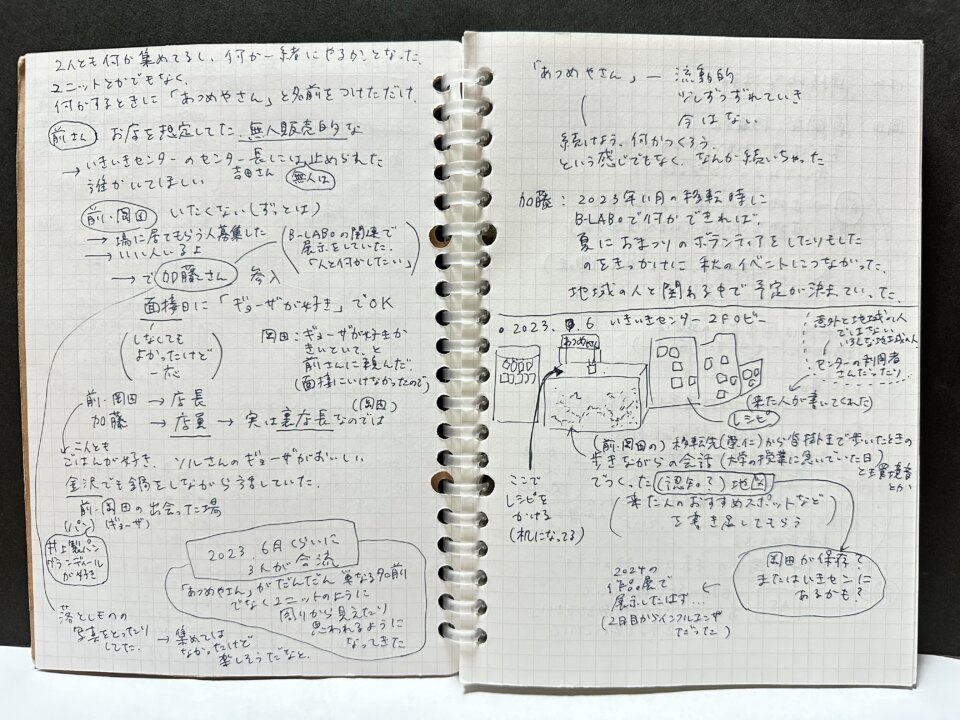 2人とも何か集めてるし、何か一緒にやるかとなった。
ユニットとかでもなく、
何かするときに「あつめやさん」と名前をつけただけ。
前さん お店を想定してた。無人販売的な
→ いきいきセンターのセンター長には止められた
吉田さん 無人は
誰かいてほしい
前・岡田 いたくない(ずっとは)
→ 場に居てもらう人募集した
→ いい人いるよ
→ で 加藤さん 参入
(B-LABOの関連で
展示をしていた。
「人と何かしたい」)
面接日に「ギョーザが好き」でOK
(しなくても
よかったけど
一応)
岡田:ギョーザが好きか
きいといて、と
前さんに頼んだ。
(面接にいけなかったので)
前・岡田 → 店長
加藤 → 店員 → 実は裏店長なのでは
(岡田)
二人とも
ごはんが好き。ソルさんのギョーザがおいしい
金沢でも鍋をしながら話していた。
前・岡田の出会った場
(パン) (ギョーザ)
井上製パン
が好き
2023.6月くらいに
3人が合流
「あつめやさん」がだんだん単なる名前
でなくユニットのように
周りから見えたり
思われるように
なってきた
落としものの
写真をとったり
してた。
→ 集めては
なかったけど
楽しそうだなと。
「あつめやさん」― 流動的
少しずつずれていき
今はない
続けよう、何かつくろう、
という感じでもなく、なんか続いちゃった
加藤:2023年11月の移転時に
B-LABOで何かできれば。
夏におまつりのボランティアをしたりもした
のをきっかけに秋のイベントにつながった。
地域の人と関わる中で予定が決まっていった。
○ 2023. 9. 6 いきいきセンター 2Fロビー
あつめや
意外と地域の人
ではない
いろんな地域の人
センターの利用者
さんだったり
(来た人が書いてくれた)
レシピ
(前・岡田の)移転先(崇仁)から沓掛まで歩いたときの
歩きながらの会話(大学の授業に急いでいた日)
と環境音
とか
でつくった(認知?)地図
(来た人のおすすめスポットなど
を書き足してもらう)
ここで
レシピを
かける
(机になってる)
岡田が保存?
またはいきセンに
あるかも?
2024の
作品展で
展示したはず…
(2日目からインフルエンザ
だった)